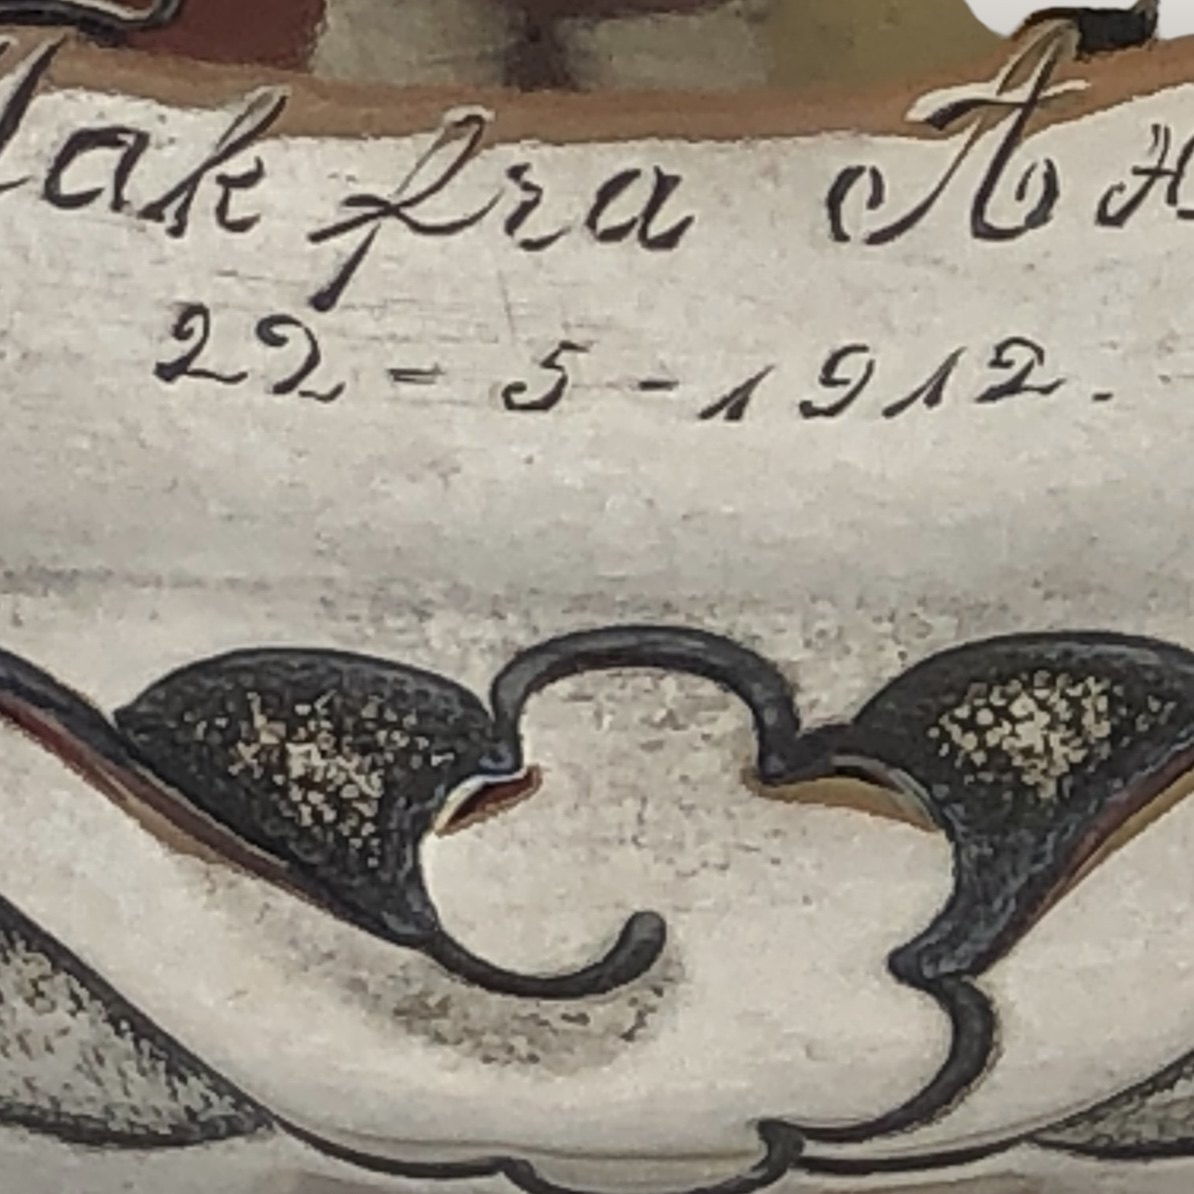 Tak fra A
22-5-1912.